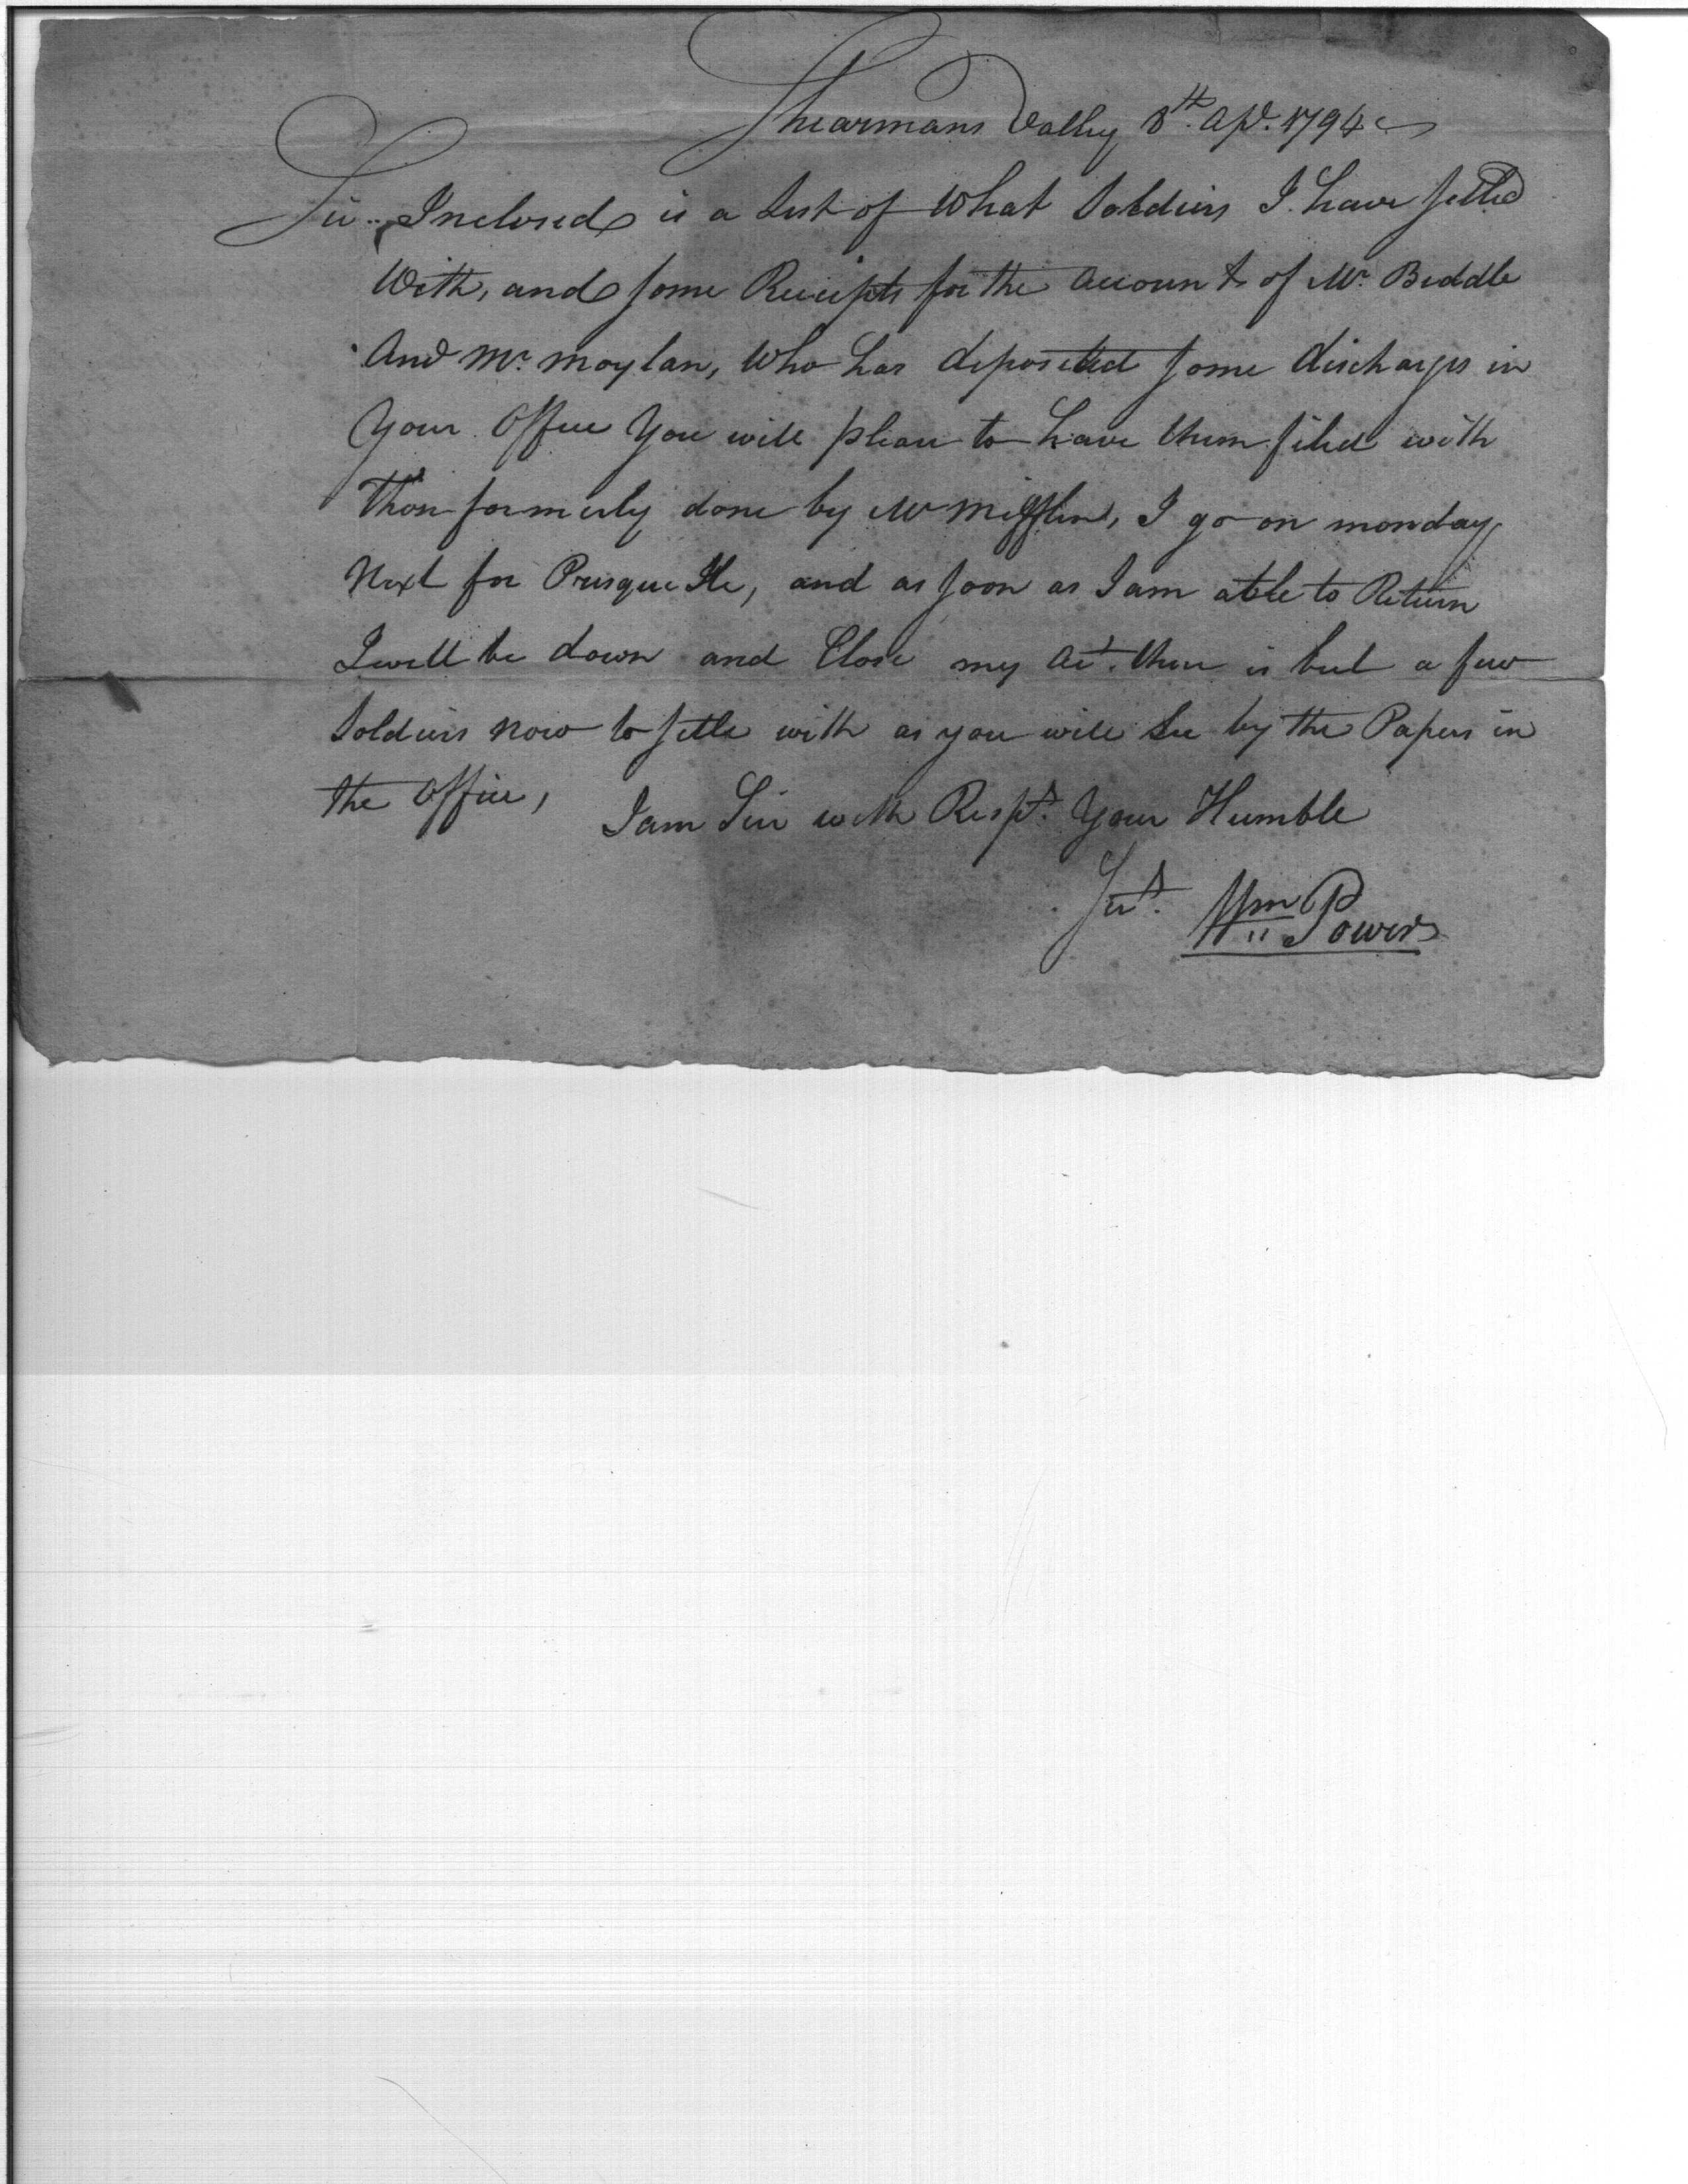 Shearmans Valley 8th. Apl. 1794
Sir.. Inclosed is a List of What Soldiers I have setled
With, and some Receipts for the account of Mr. Biddle
And Mr. Moylan, Who has deposited some discharges in
Your Office You will please to have them filed with
Those formerly done by Mr Mifflin, I go on monday
Next for Presque Ile, and as soon as I am able to Return
I will be down and Close my Act. there is but a few
Soldiers Now to setle with as you will See by the Papers in
the Office,
I am Sir with Respt. Your Humble
Sert. Wm Power